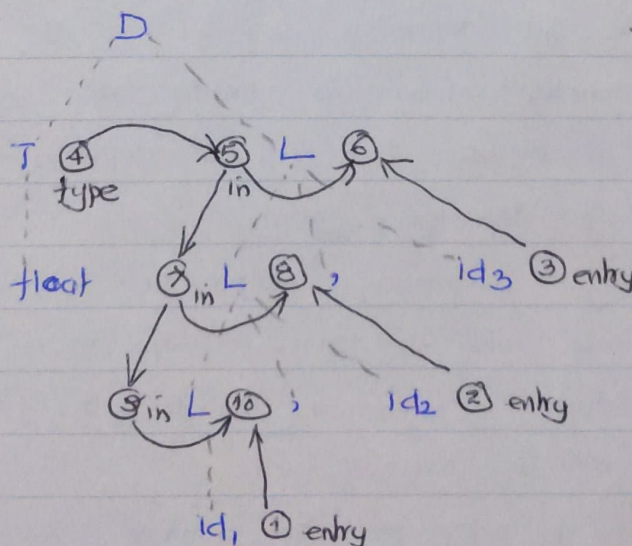 D
T ④ ⑤ L ⑥
type in
float ⑦ in L ⑧ , id3 ③ entry
⑨ in L ⑩ , id2 ② entry
id1 ① entry